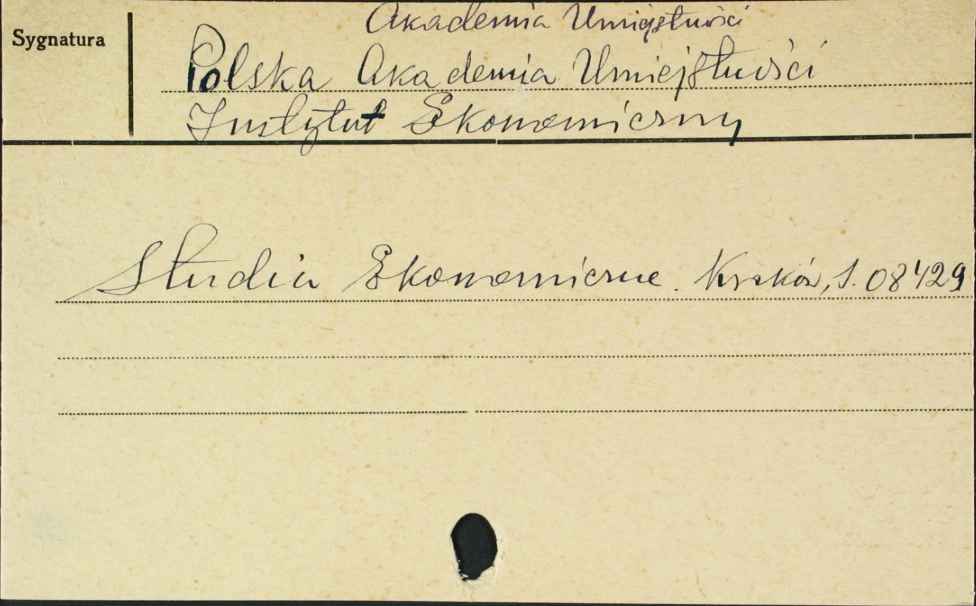 Akademia Umiejętności
Sygnatura
Polska Akademia Umiejętności
Instytut Ekonomiczny
Studia Ekonomiczne. Kraków, S. 08429